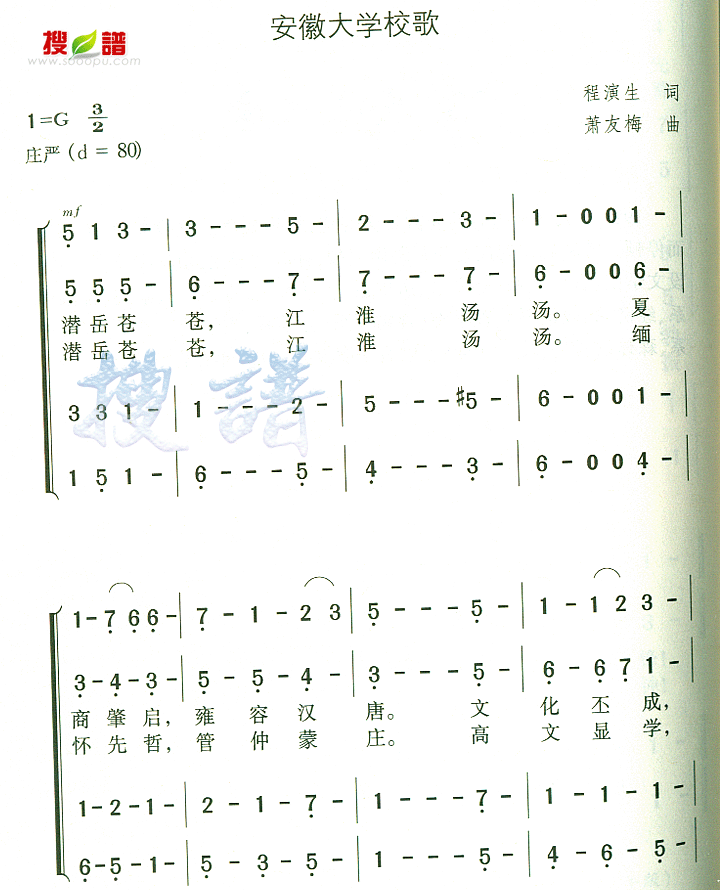 安徽大学校歌
搜谱
www.sooopu.com
程演生 词
1=G 3/2
萧友梅 曲
庄严 (d = 80)
mf
5̣ 1 3 - | 3 - - - 5 - | 2 - - - 3 - | 1 - 0 0 1 -
5̣ 5̣ 5̣ - | 6̣ - - - 7̣ - | 7̣ - - - 7̣ - | 6̣ - 0 0 6̣ -
潜 岳 苍 苍， 江 淮 汤 汤。 夏
潜 岳 苍 苍， 江 淮 汤 汤。 缅
搜谱
3 3 1 - | 1 - - - 2 - | 5 - - - #5 - | 6 - 0 0 1 -
1 5̣ 1 - | 6̣ - - - 5̣ - | 4̣ - - - 3̣ - | 6̣ - 0 0 4̣ -
1 - 7̣ 6̣ 6̣ - | 7̣ - 1 - 2 3 | 5̣ - - - 5̣ - | 1 - 1 2 3 -
3̣ - 4̣ - 3̣ - | 5̣ - 5̣ - 4̣ - | 3̣ - - - 5̣ - | 6̣ - 6̣ 7̣ 1 -
商 肇 启， 雍 容 汉 唐。 文 化 丕 成，
怀 先 哲， 管 仲 蒙 庄。 高 文 显 学，
1 - 2 - 1 - | 2 - 1 - 1 - 7̣ | 1 - - - 7̣ - | 1 - 1 - 1 -
6̣ - 5̣ - 1 - | 5̣ - 3̣ - 5̣ - 5̣ | 1 - - - 5̣ - | 4̣ - 6̣ - 5̣ -